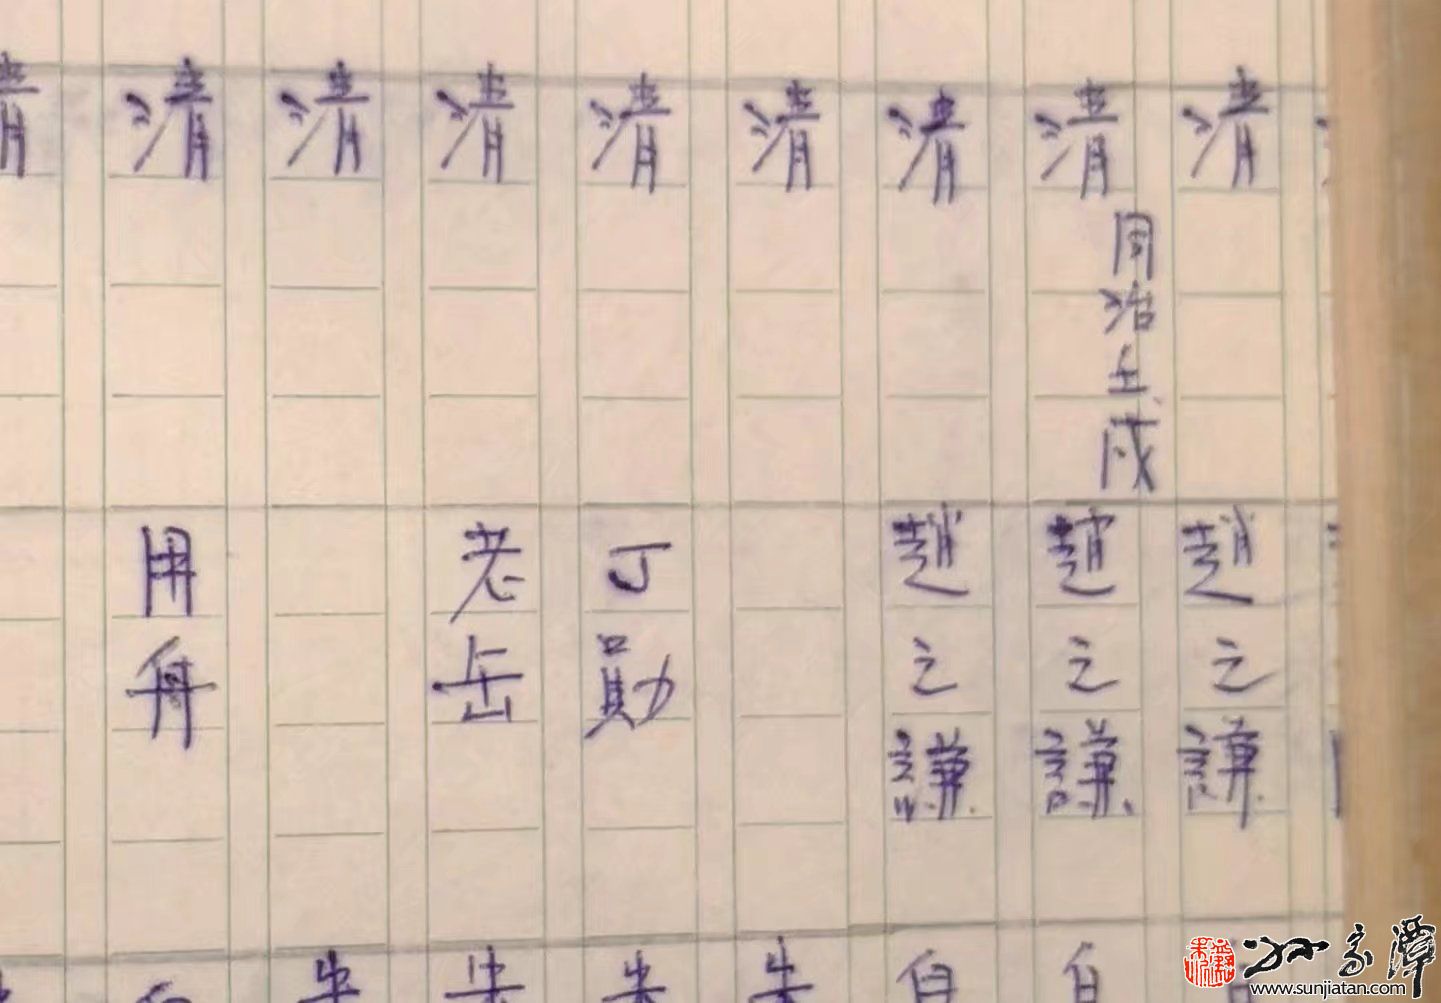 清 趙之謙
清 同治壬戌 趙之謙 白
清 趙之謙 白
清 朱
清 丁勛 朱
清 老岳 朱
清 朱
清 用舟 白
清
孙家潭
www.sunjiatan.com